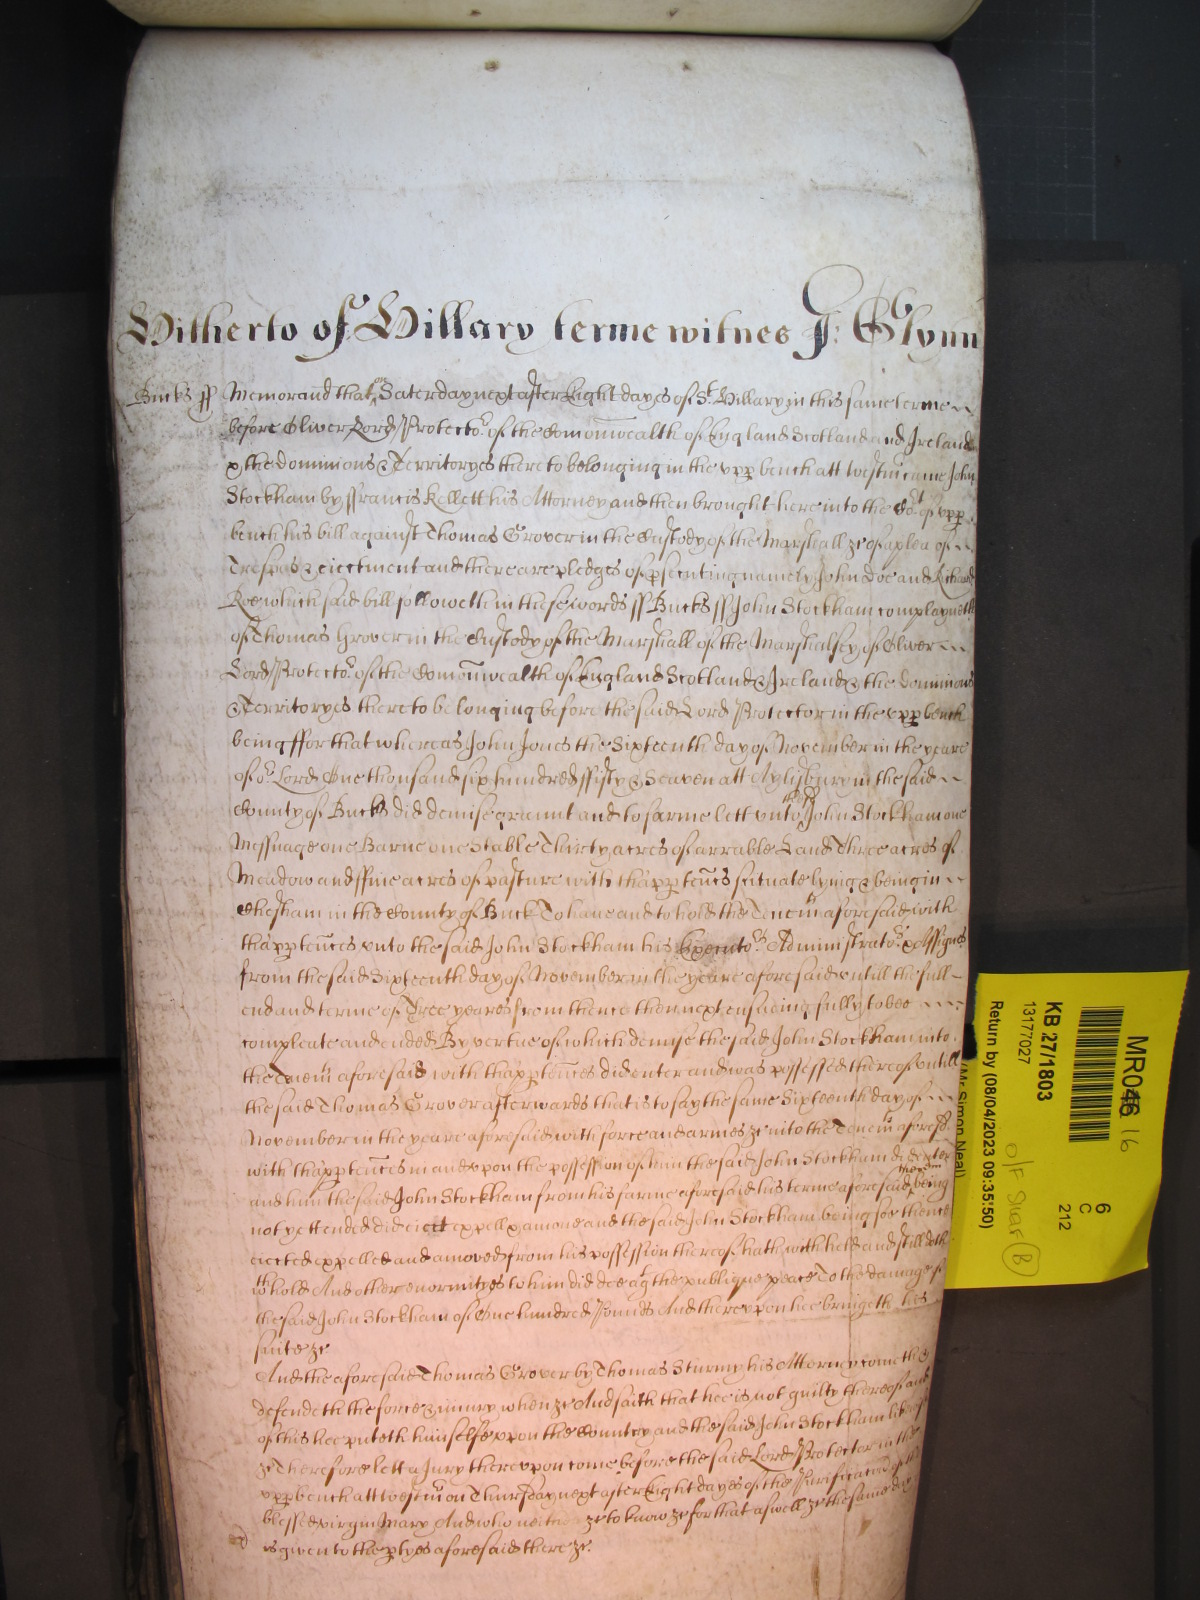 Hitherto of Hillary terme witnes J: Glynn
Bucks ss Memorand that on Saterday next after Eight dayes of St. Hillary in this same terme
before Oliver Lord Protector of the Comonwealth of England Scotland and Ireland
& the dominions & Territoryes thereto belonging in the upp bench att westm came John
Stockham by ffrancis Kellett his Attorney and then brought here into the Cot of upp
bench his bill against Thomas Grover in the Custody of the Marshall &c of a plea of
Trespas & eiectment and there are pledges of psenting namely John Doe and Richard
Roe which said bill followeth in these words ss Bucks ss John Stockham complayneth
of Thomas Grover in the Custody of the Marshall of the Marshalsey of Oliver
Lord Protector of the Comonwealth of England Scotland & Ireland & the dominions
& Territoryes thereto belonging before the said Lord Protector in the upp bench
being ffor that whereas John Jones the Sixteenth day of November in the yeare
of or Lord One thousand six hundred ffifty & Seaven att Aylisbury in the said
County of Bucks did demise graunt and to farme lett unto the sd John Stockham one
Messuage one Barne one Stable Thirty acres of arrable Land Three acres of
Meadow and ffive acres of pasture with thapptences scituate lying & being in
Chesham in the County of Buck To have and to hold the Tenemts aforesaid with
thapptences unto the said John Stockham his Executors Administrators & Assignes
from the said Sixteenth day of November in the yeare aforesaid untill the full
end and terme of Three yeares from thence then next ensueing fully to bee
compleate and ended By vertue of which demise the said John Stockham into
the Tenemts aforesaid with thapptences did enter and was possessed thereof untill
the said Thomas Grover afterwards that is to say the same Sixteenth day of
November in the yeare aforesaid with force and armes &c into the Tenemts aforesd
with thapptences in and upon the possession of him the said John Stockham did enter
and him the said John Stockham from his farme aforesaid his terme aforesaid therein being
not yett ended did eiect expell & amove and the said John Stockham being soe thence
eiected expelled and amoved from his possession thereof hath withheld and still doth
wthhold And other enormityes to him did doe agt the publique peace To the damage of
the said John Stockham of One hundred Pounds And thereupon hee bringeth his
suite &c
And the aforesaid Thomas Grover by Thomas Sturmy his Attorney cometh &
defendeth the force & iniury when &c And saith that hee is not guilty thereof and
of this hee puteth himselfe upon the Countrey and the said John Stockham likewise
&c Therefore lett a Jury thereupon come before the said Lord Protector in the
upp bench att westm on Thursday next after Eight dayes of the Purificacon of the
blessed virgin Mary And who neither &c to know &c for that aswell &c the same day
is given to the ptyes aforesaid there &c
MR046 16
KB 27/1803
13177027
Return by (08/04/2023 09:35:50)
(Mr Simon Neal)
6
C
212